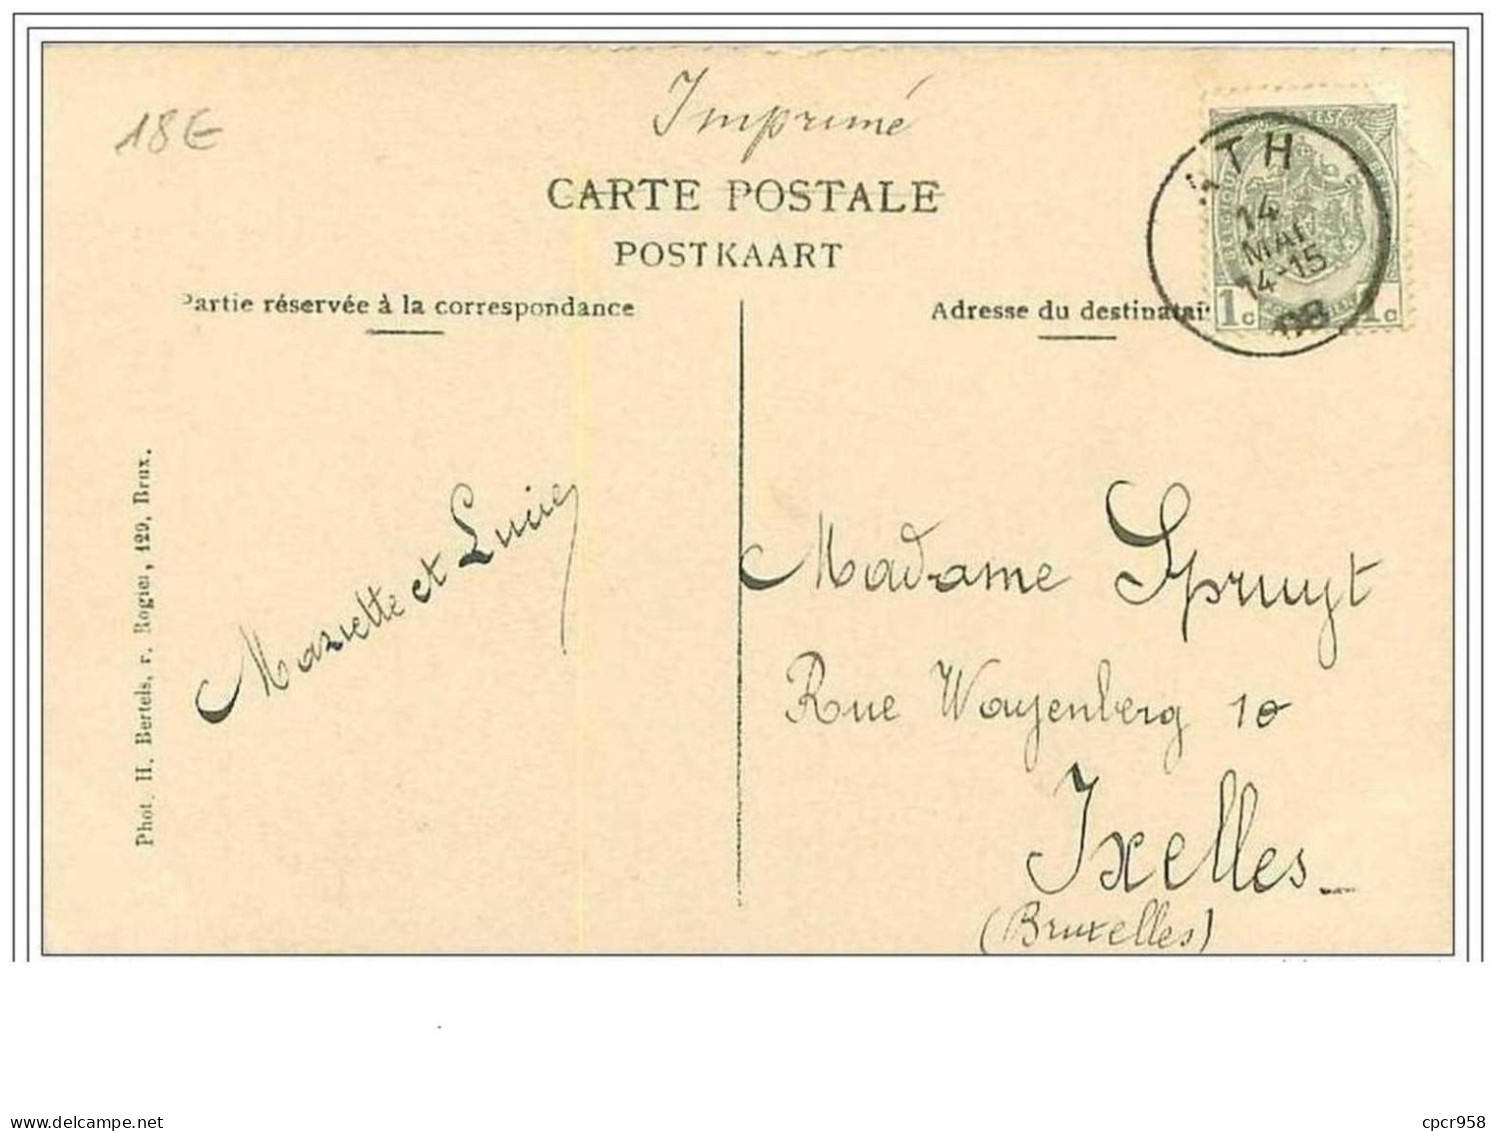 18€
Imprimé
CARTE POSTALE
POSTKAART
Partie réservée à la correspondance
Adresse du destinatai
ATH
14
MAI
14-15
08
1c 1c
Phot. H. Bertels, r. Rogier, 129, Brux.
Mariette et Lucie
Madame Spruyt
Rue Wayenberg 10
Ixelles
(Bruxelles)
www.delcampe.net
cpcr958